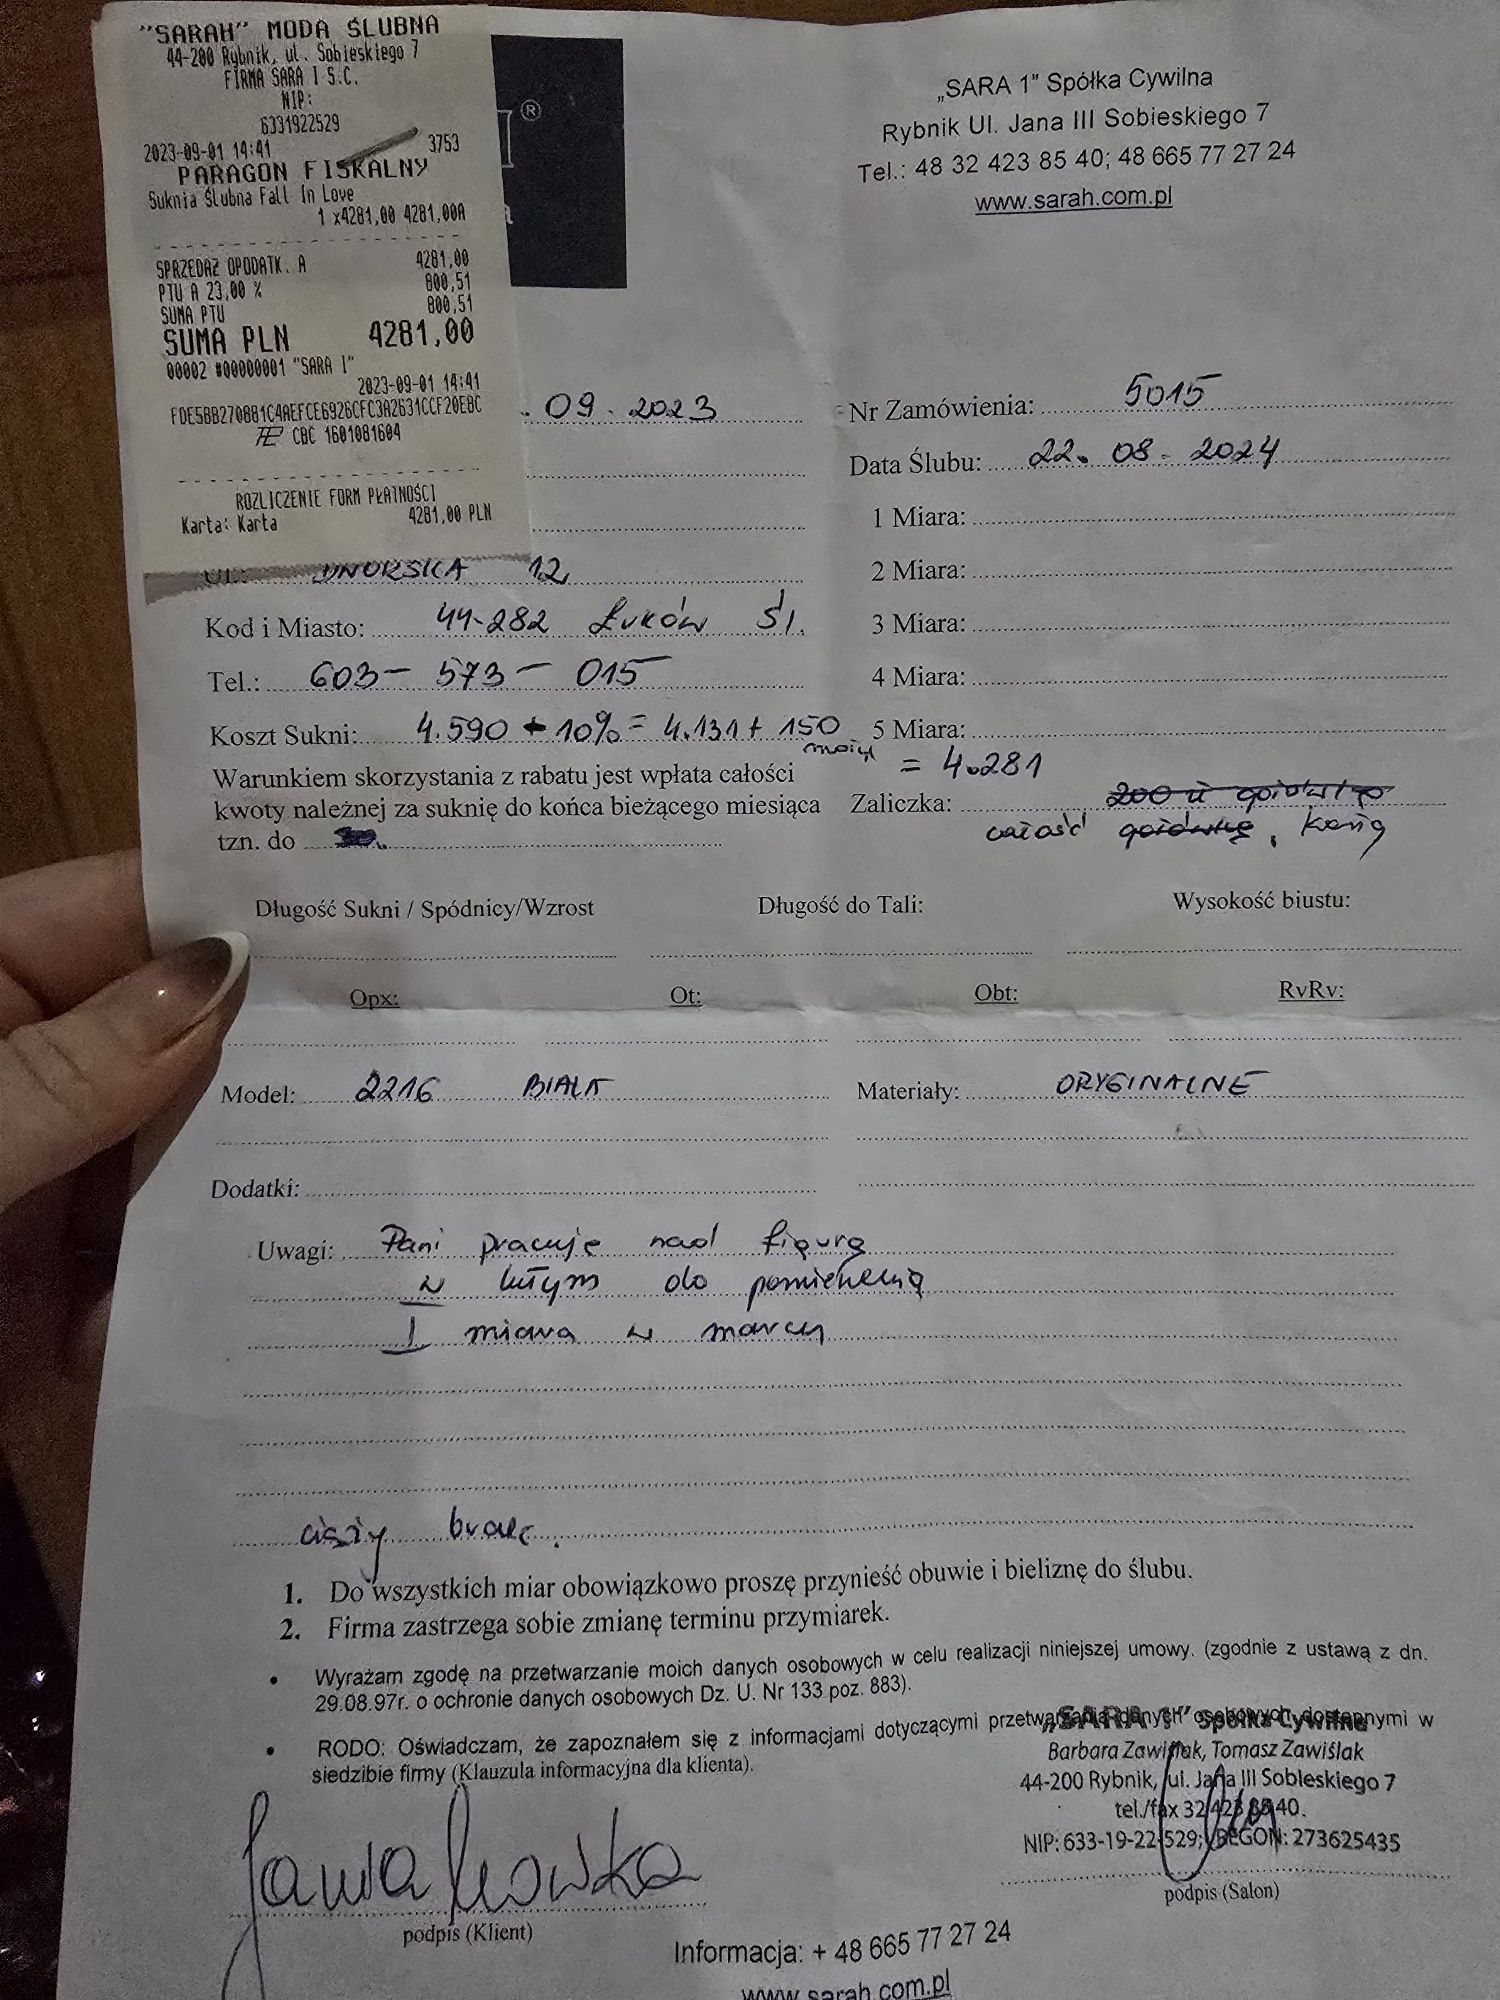 "SARAH" MODA ŚLUBNA
44-200 Rybnik, ul. Sobieskiego 7
FIRMA SARA I S.C.
NIP:
6331922529
2023-09-01 14:41 3753
PARAGON FISKALNY
Suknia Ślubna Fall In Love
1 x4281,00 4281,00A
SPRZEDAŻ OPODATK. A 4281,00
PTU A 23,00 % 800,51
SUMA PTU 800,51
SUMA PLN 4281,00
00002 #00000001 "SARA I"
2023-09-01 14:41
FDE5BB270881C4AEFCE6926CFC3A2631CCF20EBC
CBC 1601081604
ROZLICZENIE FORM PŁATNOŚCI
Karta: Karta 4281,00 PLN
®
„SARA 1" Spółka Cywilna
Rybnik Ul. Jana III Sobieskiego 7
Tel.: 48 32 423 85 40; 48 665 77 27 24
www.sarah.com.pl
. 09. 2023
Nr Zamówienia: 5015
Data Ślubu: 22. 08. 2024
1 Miara:
Ul.: DWORSKA 12
2 Miara:
Kod i Miasto: 44-282 Łuków Śl.
3 Miara:
Tel.: 603- 573- 015
4 Miara:
Koszt Sukni: 4.590 + 10% = 4.131 + 150
5 Miara:
= 4.281
Warunkiem skorzystania z rabatu jest wpłata całości
kwoty należnej za suknię do końca bieżącego miesiąca
tzn. do 30.
Zaliczka: 200 zł gotówką
całość gotówką, kartą
Długość Sukni / Spódnicy/Wzrost Długość do Tali: Wysokość biustu:
Opx: Ot: Obt: RvRv:
Model: 2216 BIAŁA
Materiały: ORYGINALNE
Dodatki:
Uwagi: Pani pracuje nad figurą
w lutym do pomierzenia
I miara w marcu
ciąży brak.
1. Do wszystkich miar obowiązkowo proszę przynieść obuwie i bieliznę do ślubu.
2. Firma zastrzega sobie zmianę terminu przymiarek.
• Wyrażam zgodę na przetwarzanie moich danych osobowych w celu realizacji niniejszej umowy. (zgodnie z ustawą z dn.
29.08.97r. o ochronie danych osobowych Dz. U. Nr 133 poz. 883).
• RODO: Oświadczam, że zapoznałem się z informacjami dotyczącymi przetwarzania danych osobowych dostępnymi w
siedzibie firmy (Klauzula informacyjna dla klienta).
„SARA 1" Spółka Cywilna
Barbara Zawiślak, Tomasz Zawiślak
44-200 Rybnik, ul. Jana III Sobieskiego 7
tel./fax 32 423 85 40.
NIP: 633-19-22-529; REGON: 273625435
podpis (Klient)
podpis (Salon)
Informacja: + 48 665 77 27 24
www.sarah.com.pl